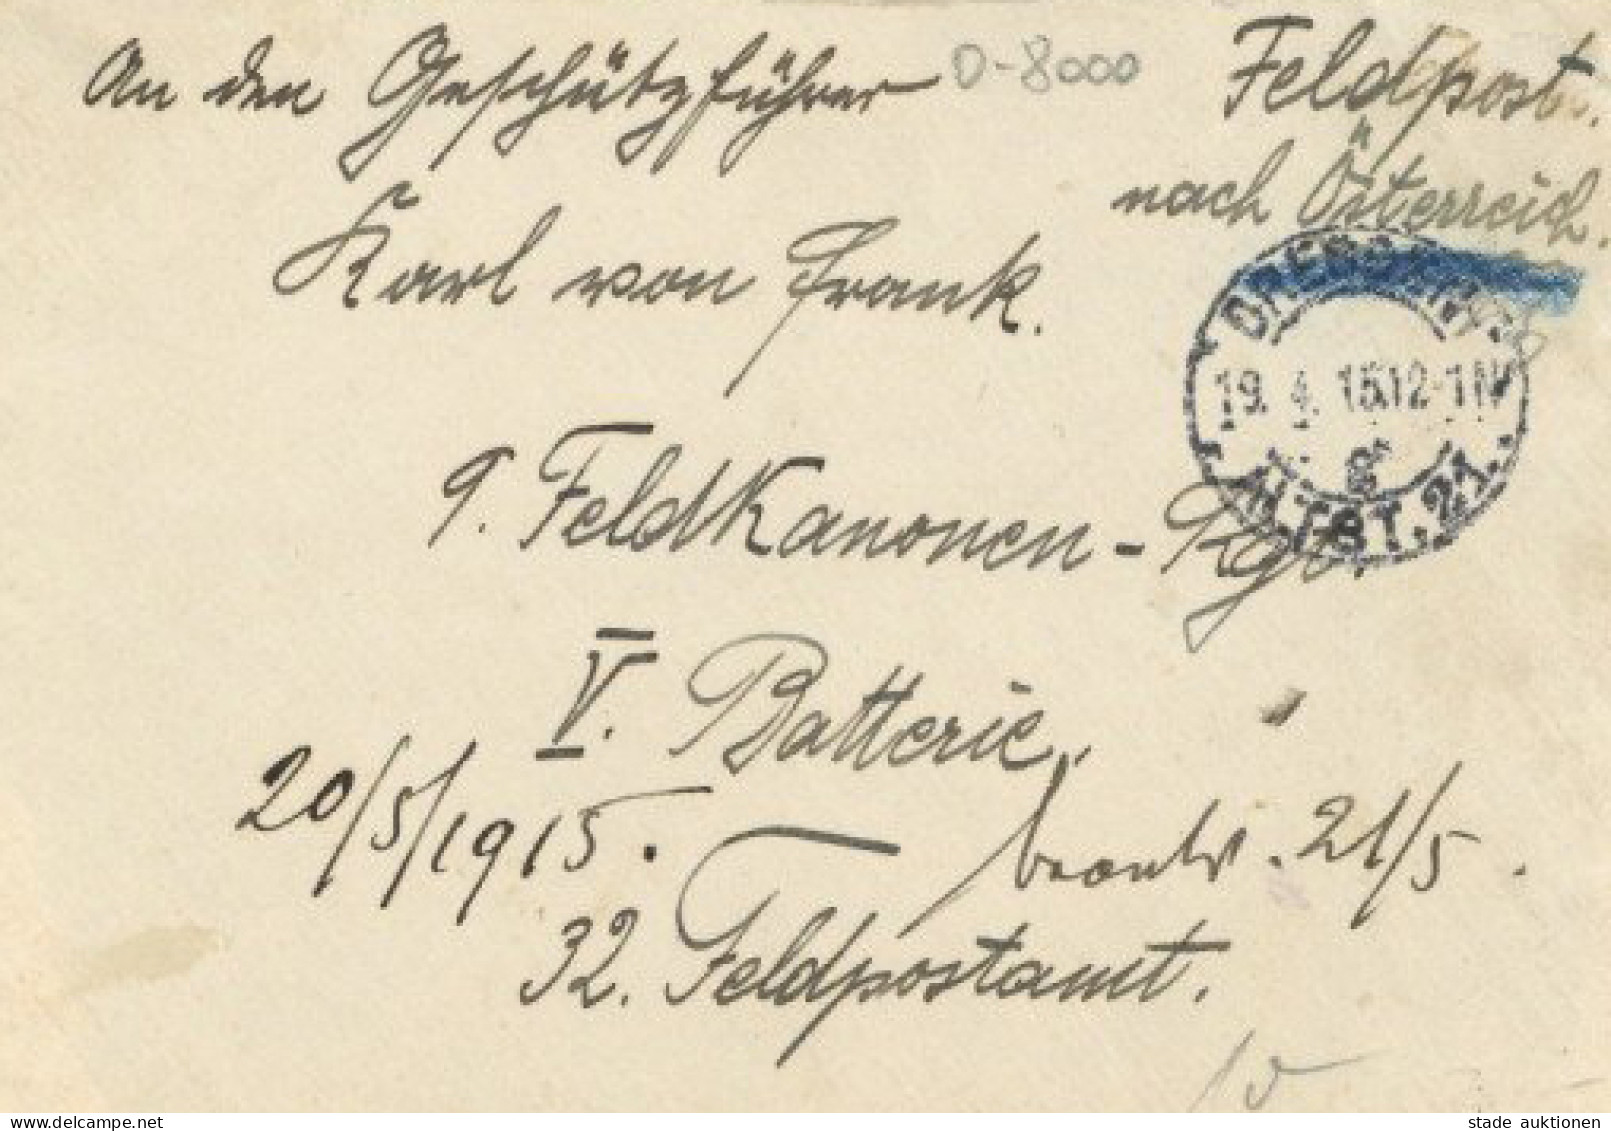 An den Geschützführer
D-8000
Feldpost.
nach Österreich.
Karl von Frank.
DRESDEN
19. 4. 15. 12-1 N
ALTST. 21.
9. Feldkanonen-Rgt.
V. Batterie.
20/5/1915.
beantw. 21/5.
32. Feldpostamt.
stade auktionen